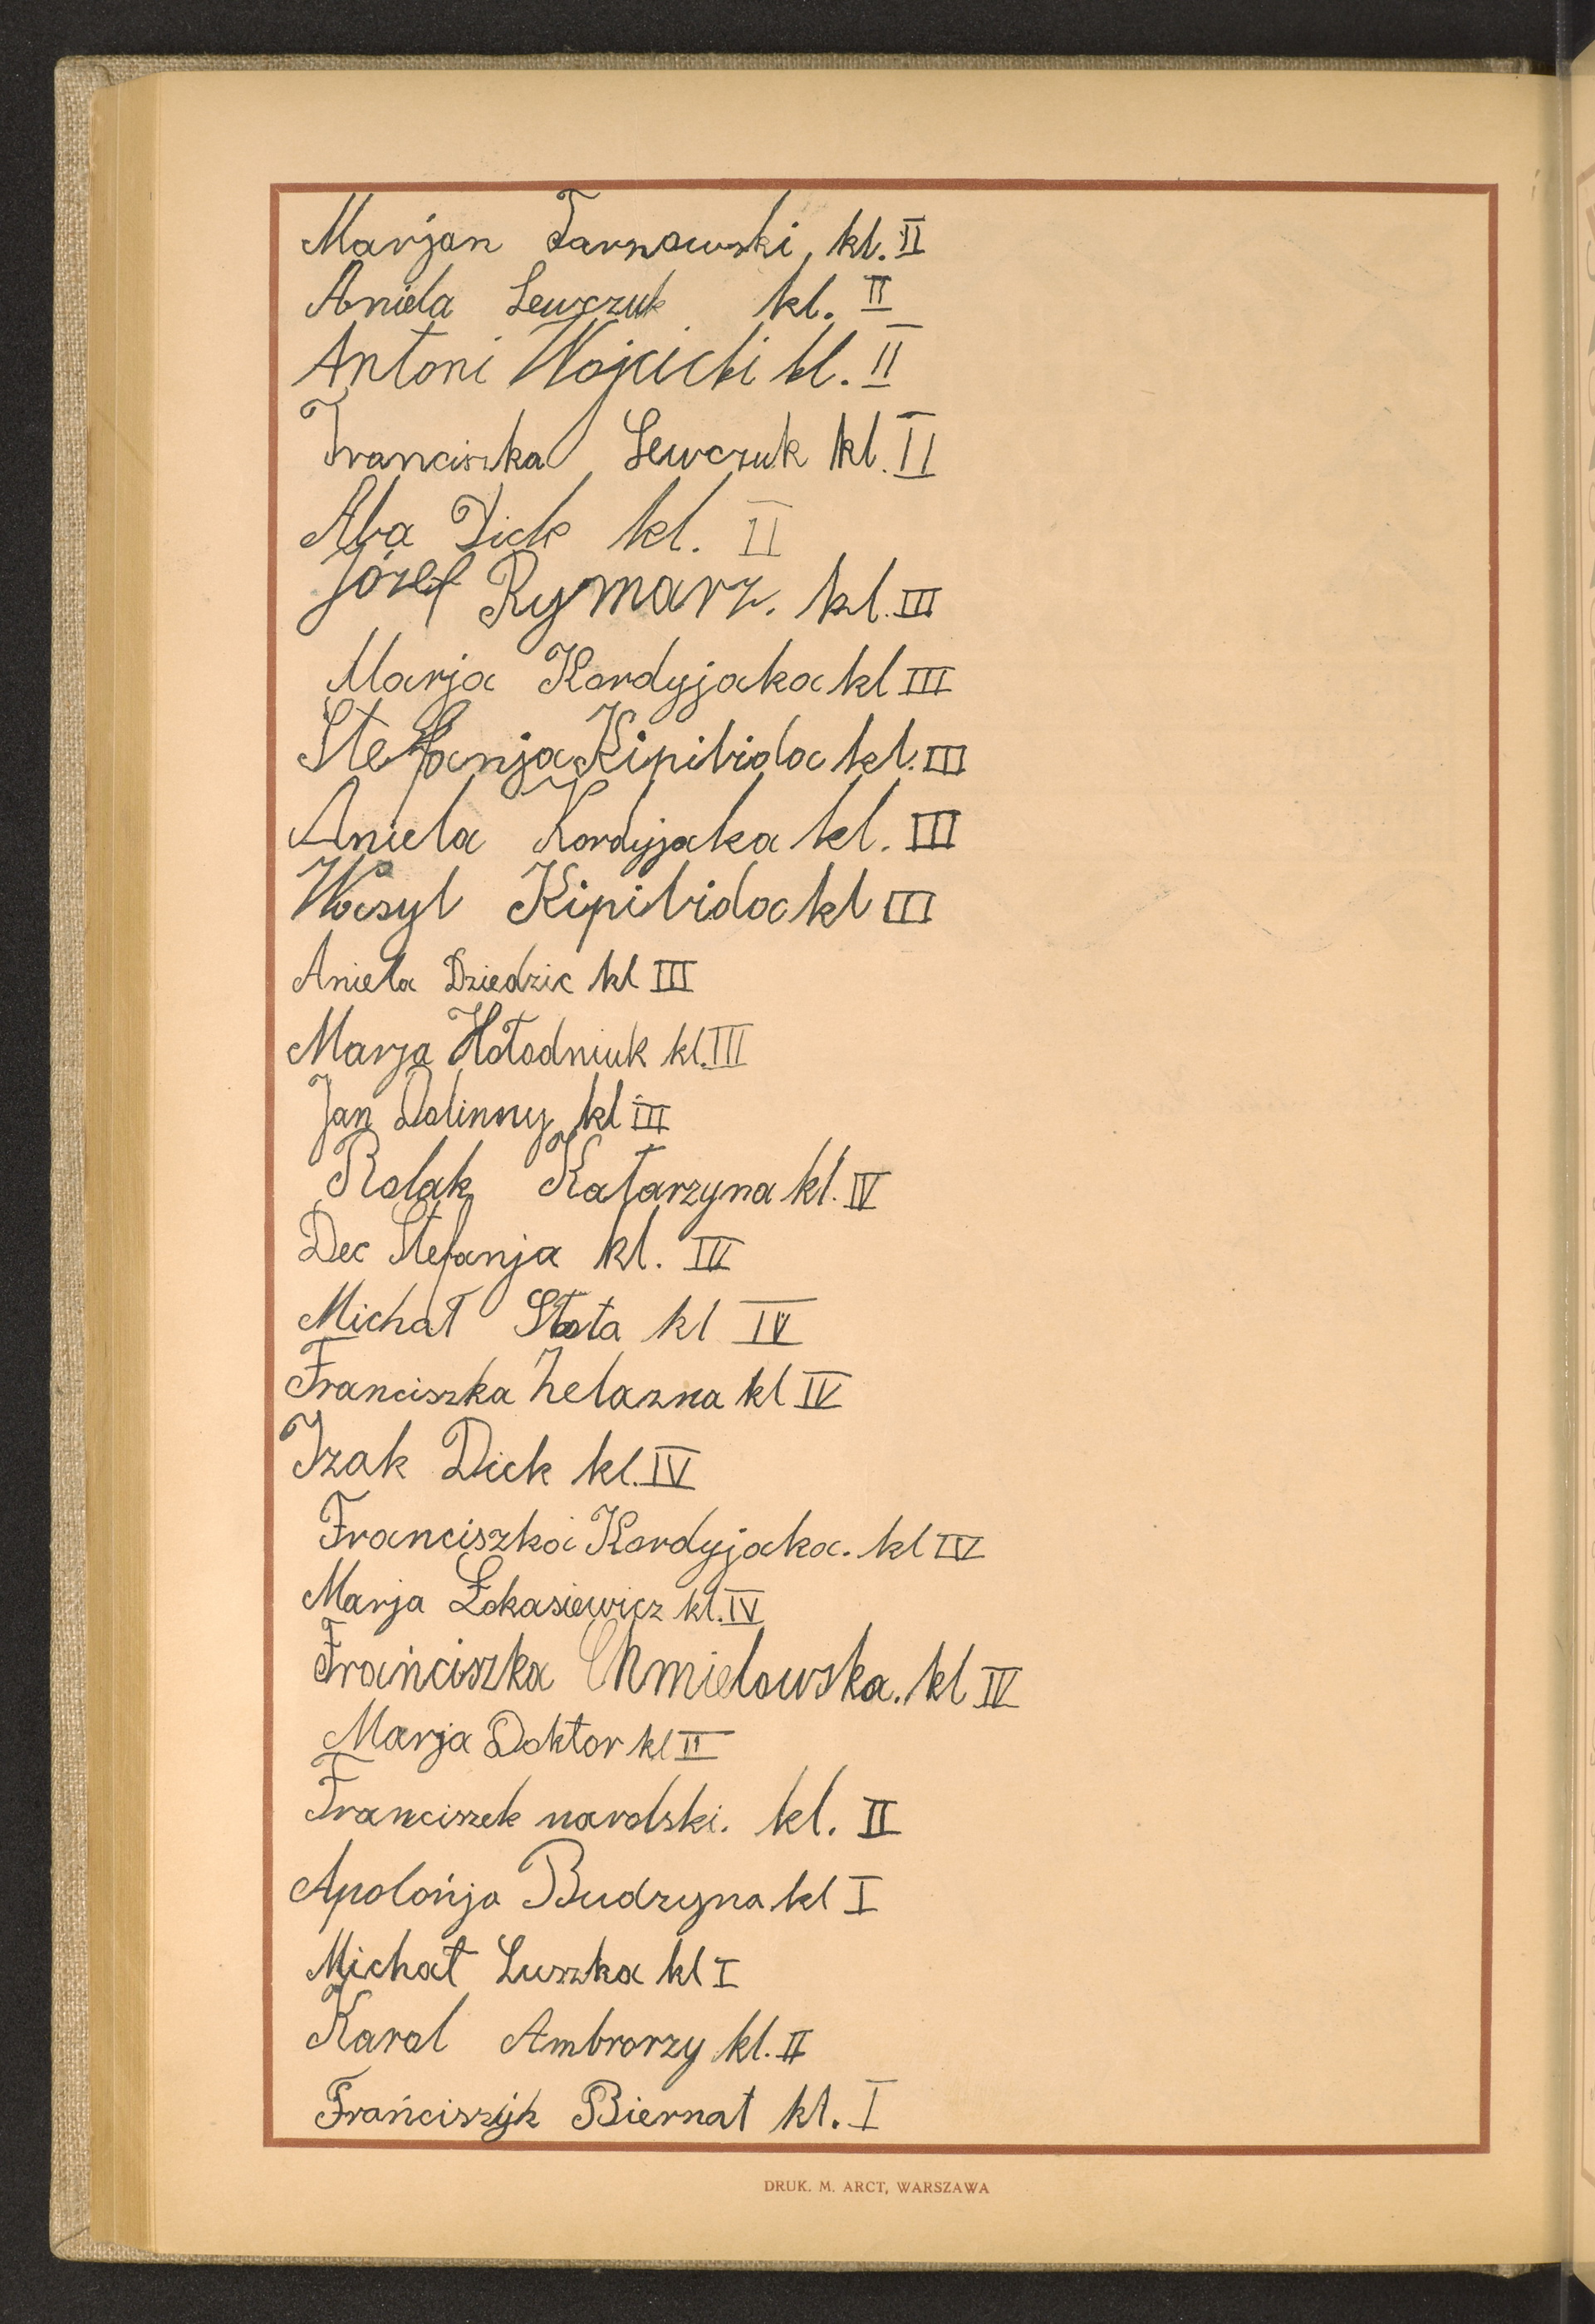 Marjan Tarnowski, kl. II
Aniela Lewczuk kl. II
Antoni Wojcicki kl. II
Franciszka Lewczuk kl. II
Aba Dick kl. II
Józef Rymarz. kl. III
Marja Kordyjaka kl III
Stefanja Kipibida kl. III
Aniela Kordyjaka kl. III
Wasyl Kipibida kl III
Aniela Dziedzic kl III
Marja Hołodniuk kl. III
Jan Dolinny kl III
Rolak Katarzyna kl. IV
Dec Stefanja kl. IV
Michał Słota kl IV
Franciszka Żelazna kl IV
Izak Dick kl. IV
Franciszka Kordyjaka. kl IV
Marja Łokasiewicz kl. IV
Frańciszka Chmielowska. kl IV
Marja Doktor kl II
Franciszek narolski. kl. II
Apolońja Budzyna kl I
Michał Luszka kl I
Karol Ambrorzy kl. II
Frańciszyk Biernat kl. I
DRUK. M. ARCT, WARSZAWA